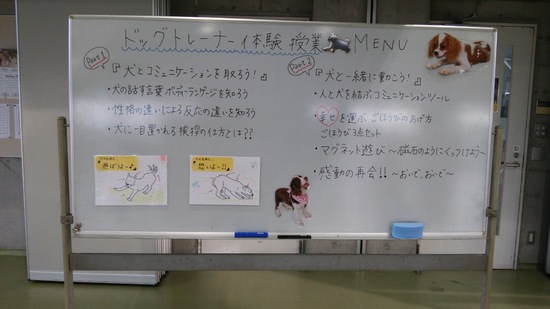 ドッグトレーナー体験授業 MENU
Part 1
『犬とコミュニケーションを取ろう!』
・犬の話す言葉 ボディーランゲージを知ろう
・性格の違いによる反応の違いを知ろう
・犬に一目置かれる挨拶の仕方とは??
遊ぼうよ〜♪
恐いよー!!
Part 2
『犬と一緒に動こう!』
・人と犬を結ぶコミュニケーションツール
・幸せを運ぶごほうびのあげ方
ごほうび3点セット
・マグネット遊び 〜磁石のようにくっつけよう〜
・感動の再会!! 〜おいで、おいで〜